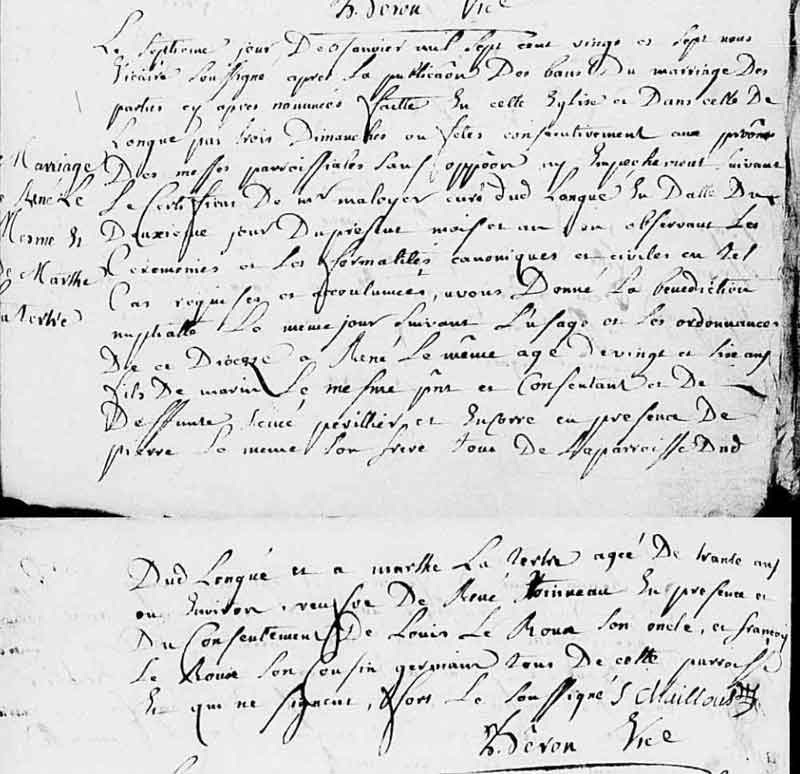 h. Deron Vice
Le Septieme jour De Janvier mil Sept cent vingt et Sept nous
Vicaire Soussigne apres La publicaôn Des bans Du marriage Des
parties cy apres nommées faitte En cette Eglise et Dans celle De
Longué par trois Dimanches ou festes consecutivement aux prône
Des messes parroissiales sans oppôon ny Empechement suivant
Le Certificat De mr maloyer curé dud Longué En Datte Du
Deuxieme jour Du present mois et an en observant Les
Ceremonies et Les formalités canoniques et civiles en tel
Cas requises et accoutumées, avons Donné La benediction
nuptialle Le meme jour suivant L'usage et Les ordonnances
De ce Diocese a René Le même agé De vingt et six ans
fils De marin Le mesme pnt et Consentant et De
Deffunte périllier et Encorre en presence De
pierre Le meme Son frere tous De La parroisse Dud
Marriage
René Le
Mesme Et
De Marthe
La tertre
Dud Longué et a marthe La tertre agée De trante ans
ou Environ, veufve De René En presence et
Du Consentement De Louis Le Roux Son oncle, et françois
Le Roux Son Cousin germain tous De cette parroisse
Et qui ne Signent, fors Le Soussigné S Maillous
h. Dêron Vice